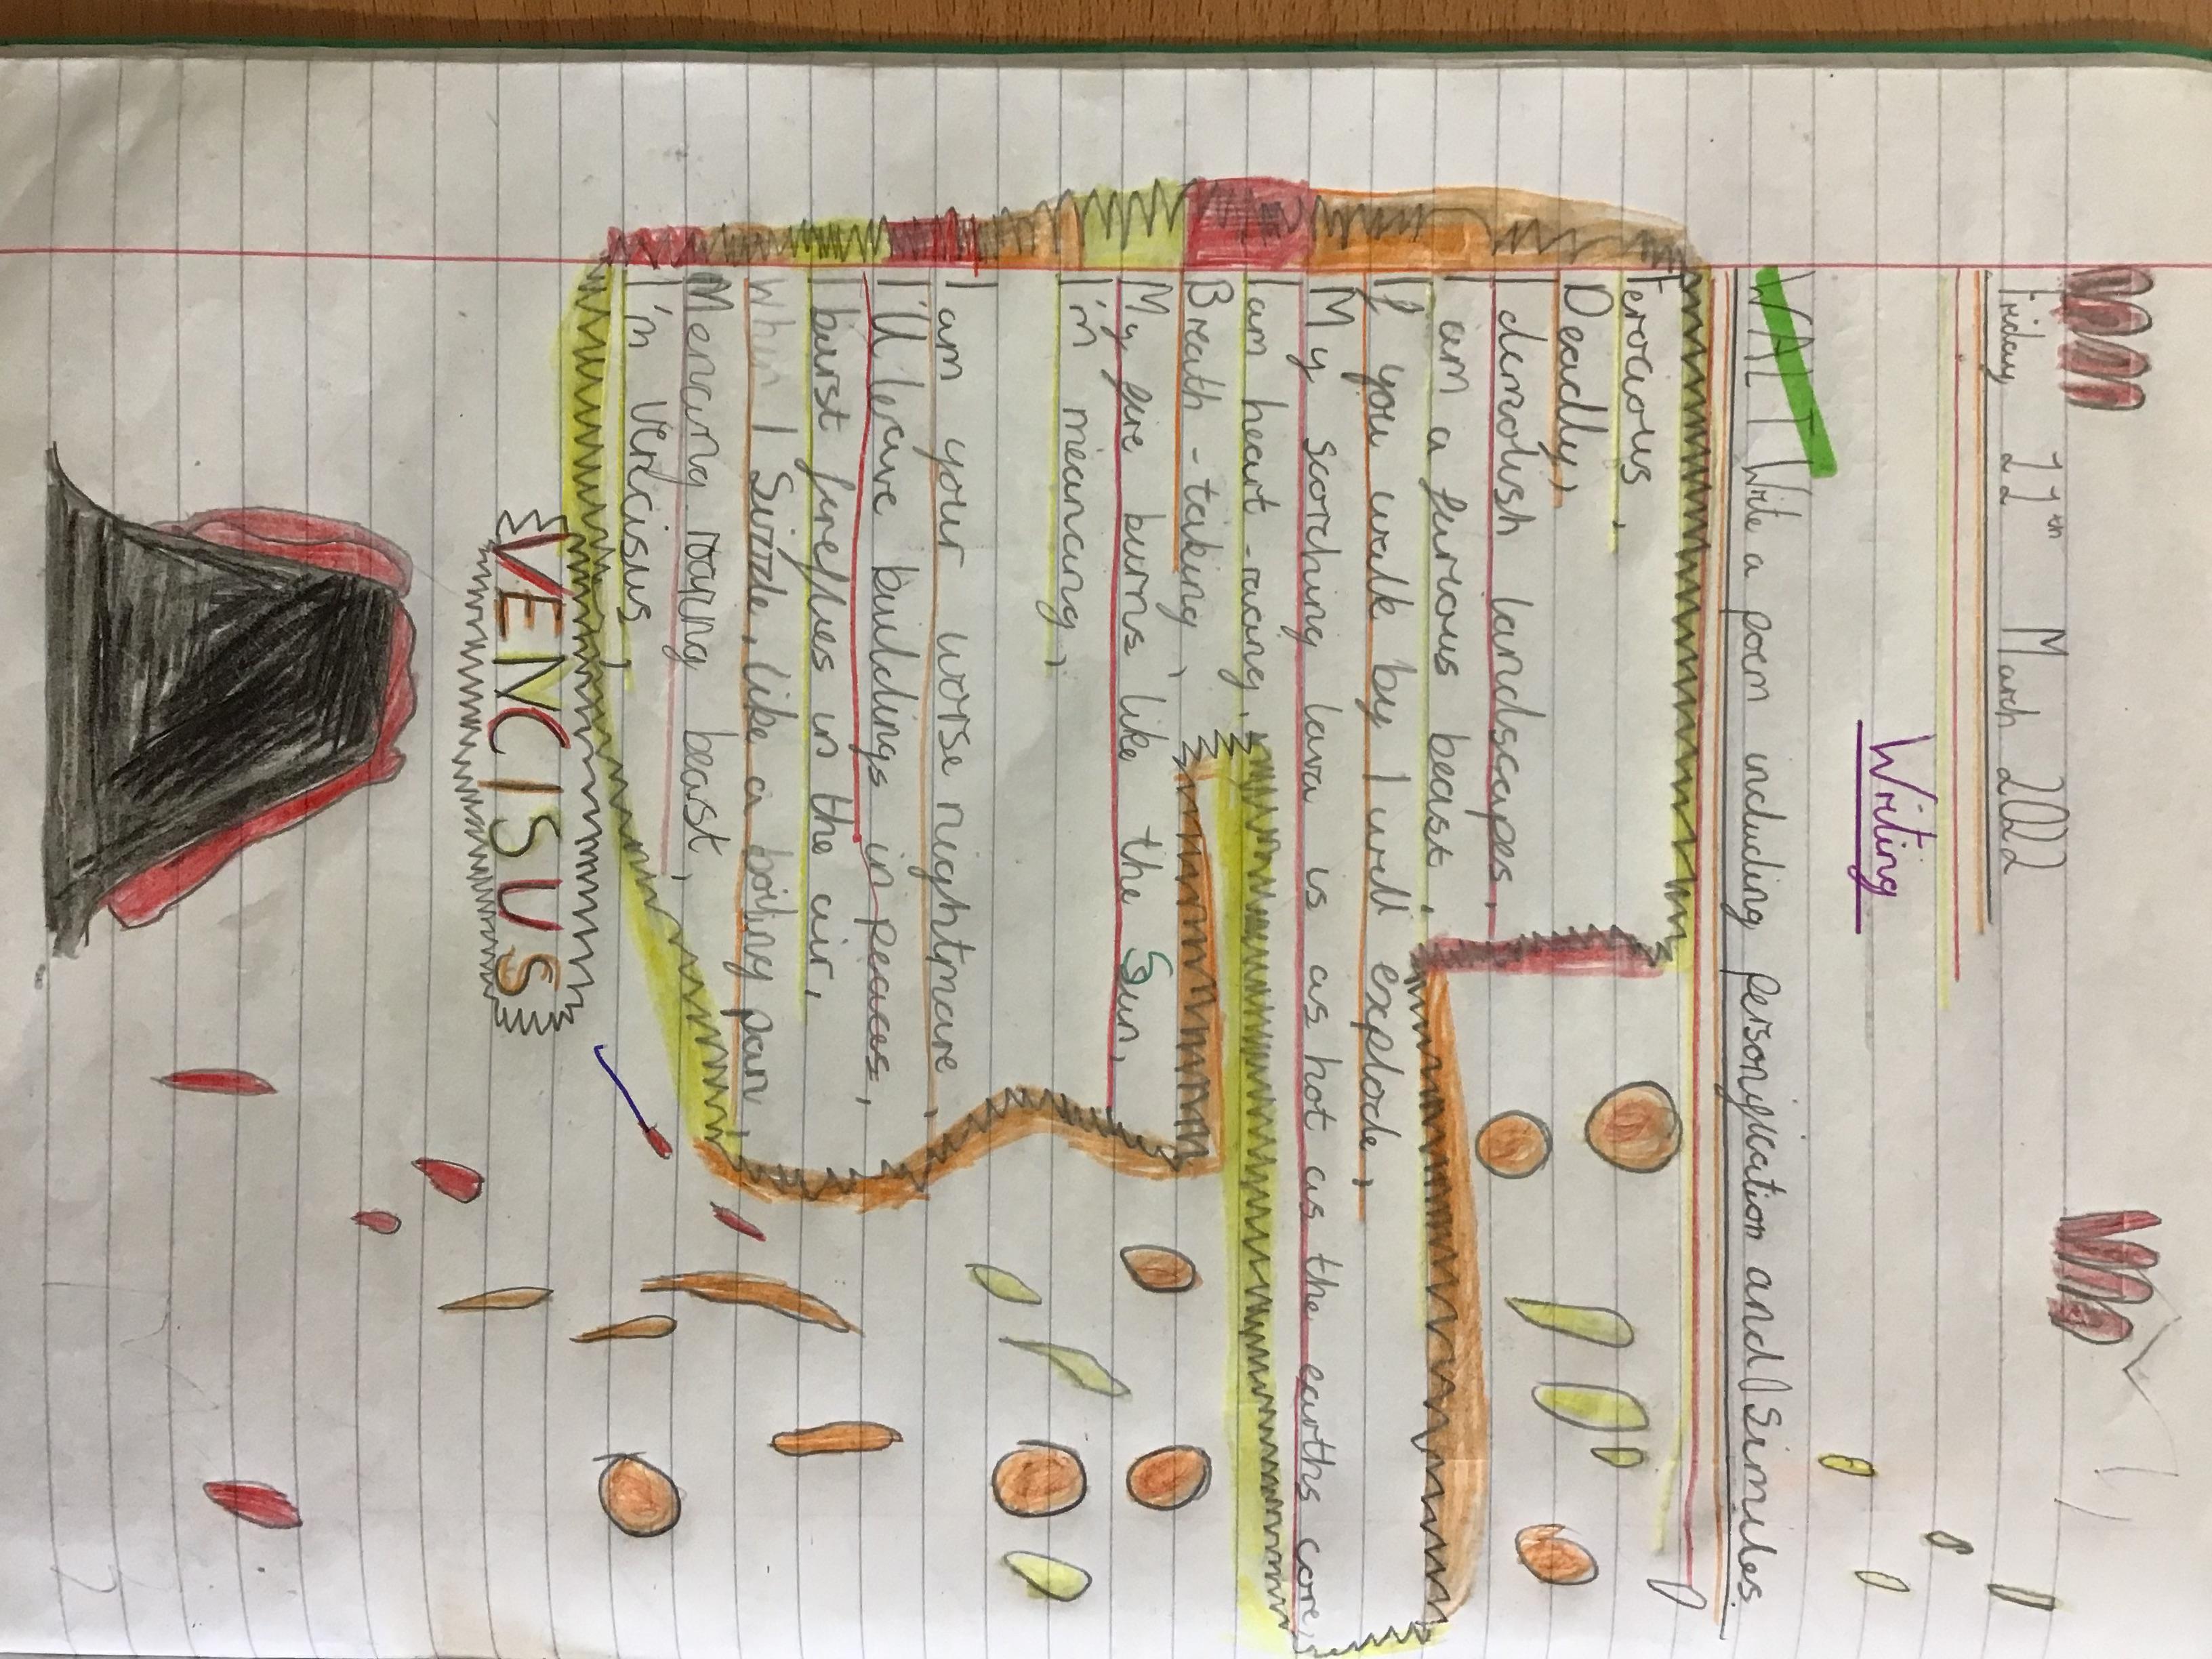 Friday 11th March 2022
Writing
WALT Write a poem including personification and Similes.
Ferocious,
Deadly,
I demolish landscapes,
I am a furious beast,
If you walk by I will explode,
My scorching lava is as hot as the earths core,
I am heart-racing,
Breath-taking,
My fire burns like the Sun,
I'm meancing,
I am your worse nightmare,
I'll leave buildings in peaces,
I burst fireflies in the air,
When I Sizzle, like a boiling pan,
Mencing roaring beast,
I'm Vencisus
VENCISUS